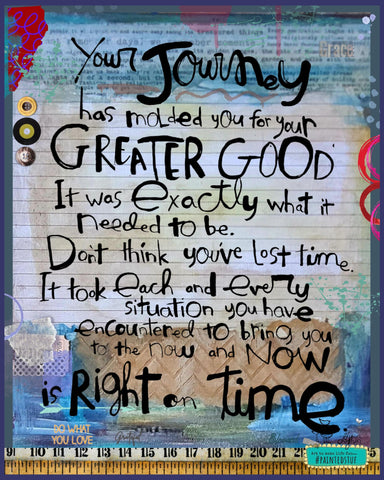 Your Journey
has molded you for your
GREATER GOOD
It was exactly what it
needed to be.
Don't think you've lost time.
It took each and every
situation you have
encountered to bring you
to the now and NOW
is Right on time.
DO WHAT
YOU LOVE
#PAINTEDSTUF
91 10 11 12 13 14 15 16 17 18 19 20 21 22